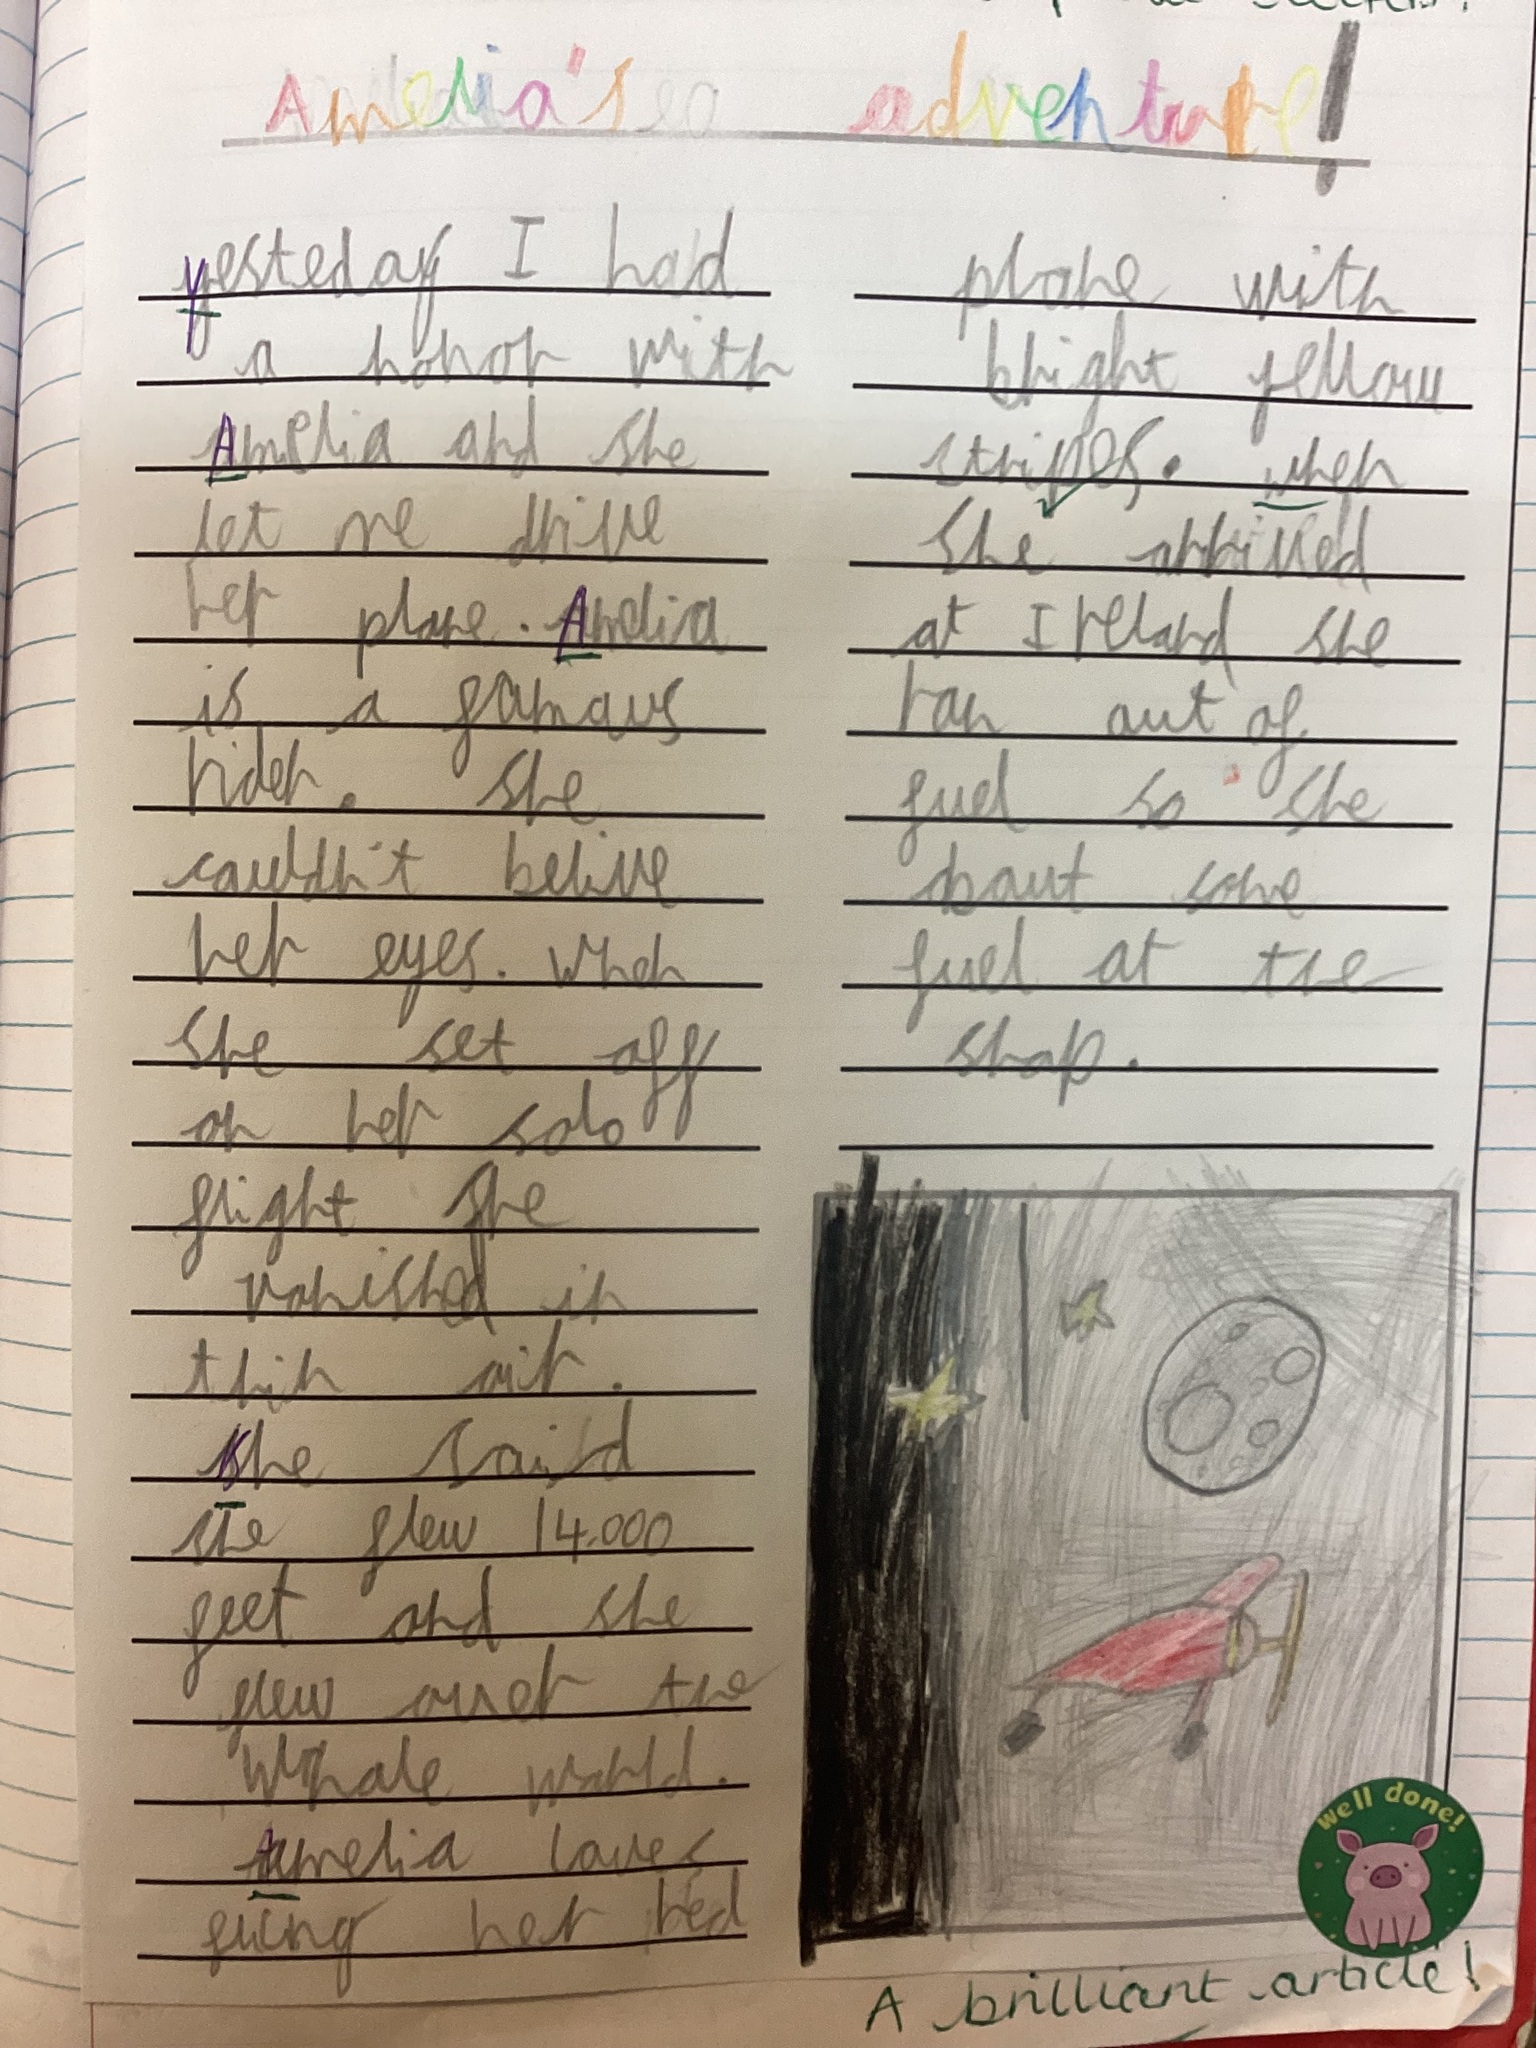 Amelia's adventure!
yesteday I had
a honor with
Amelia and she
let me drive
her plane. Amelia
is a famous
rider. she
couldn't belive
her eyes. When
she set off
on her solo
flight she
vanished in
thin air.
She said
she flew 14.000
feet and she
flew over the
Whole world.
Amelia loves
fliing her red
plane with
bright yellow
stripes. when
She arrived
at Ireland she
ran out of
fuel so she
bout some
fuel at the
shop.
well done!
A brilliant article!